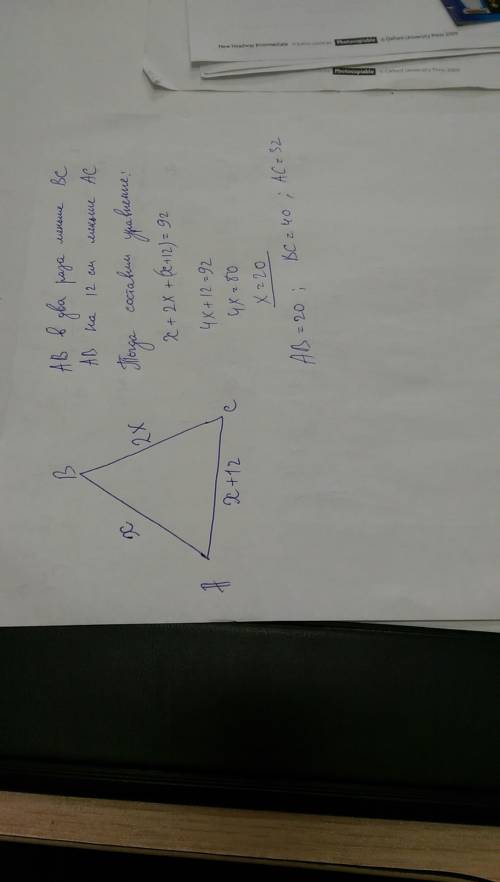 AB в два раза меньше BC
AB на 12 см меньше AC
Тогда составим уравнение:
x + 2x + (x+12) = 92
4x + 12 = 92
4x = 80
x = 20
AB = 20 ; BC = 40 ; AC = 32
B
x
2x
A
x + 12
C
New Headway Intermediate
Photocopiable
© Oxford University Press 2009
Photocopiable
© Oxford University Press 2009